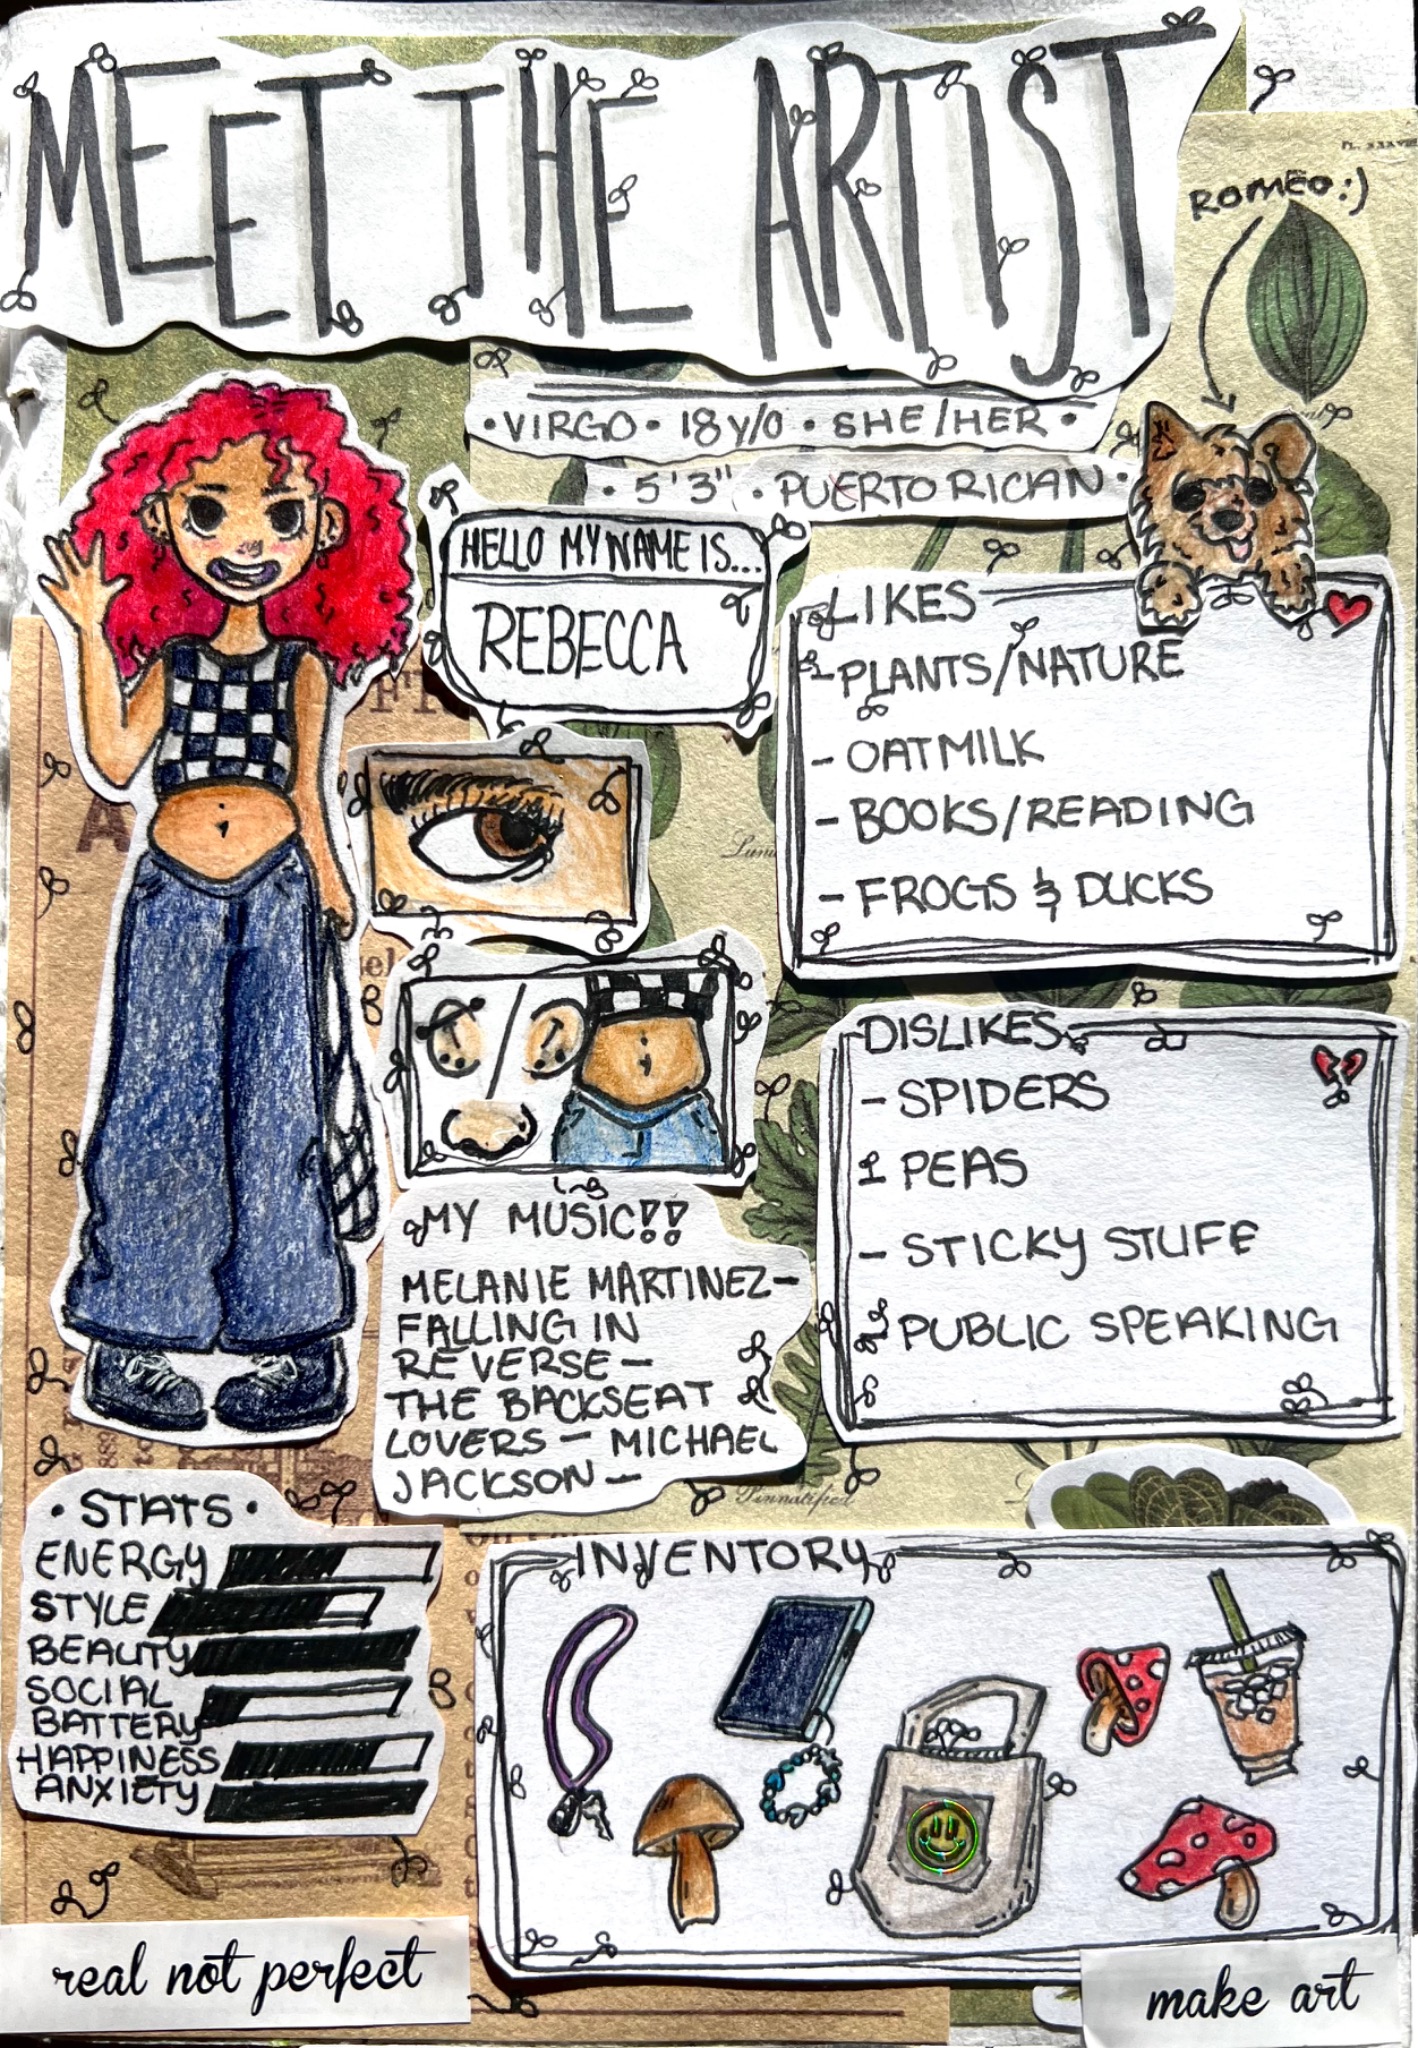 MEET THE ARTIST
ROMEO:)
• VIRGO • 18 Y/O • SHE/HER •
• 5'3" • PUERTO RICAN •
HELLO MY NAME IS...
REBECCA
LIKES
- PLANTS/NATURE
- OATMILK
- BOOKS/READING
- FROGS & DUCKS
DISLIKES
- SPIDERS
- PEAS
- STICKY STUFF
- PUBLIC SPEAKING
MY MUSIC!!
MELANIE MARTINEZ-
FALLING IN
REVERSE-
THE BACKSEAT
LOVERS - MICHAEL
JACKSON-
Pinnatified
• STATS •
ENERGY
STYLE
BEAUTY
SOCIAL
BATTERY
HAPPINESS
ANXIETY
INVENTORY
real not perfect
make art